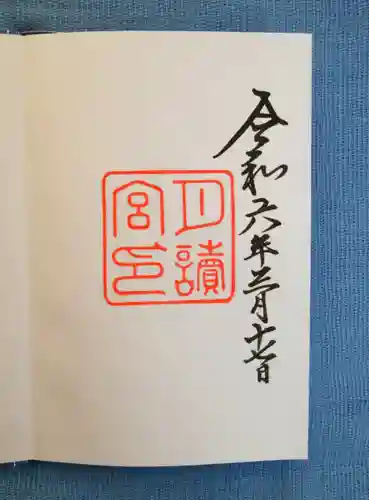 令和六年三月十七日
月讀
宮印